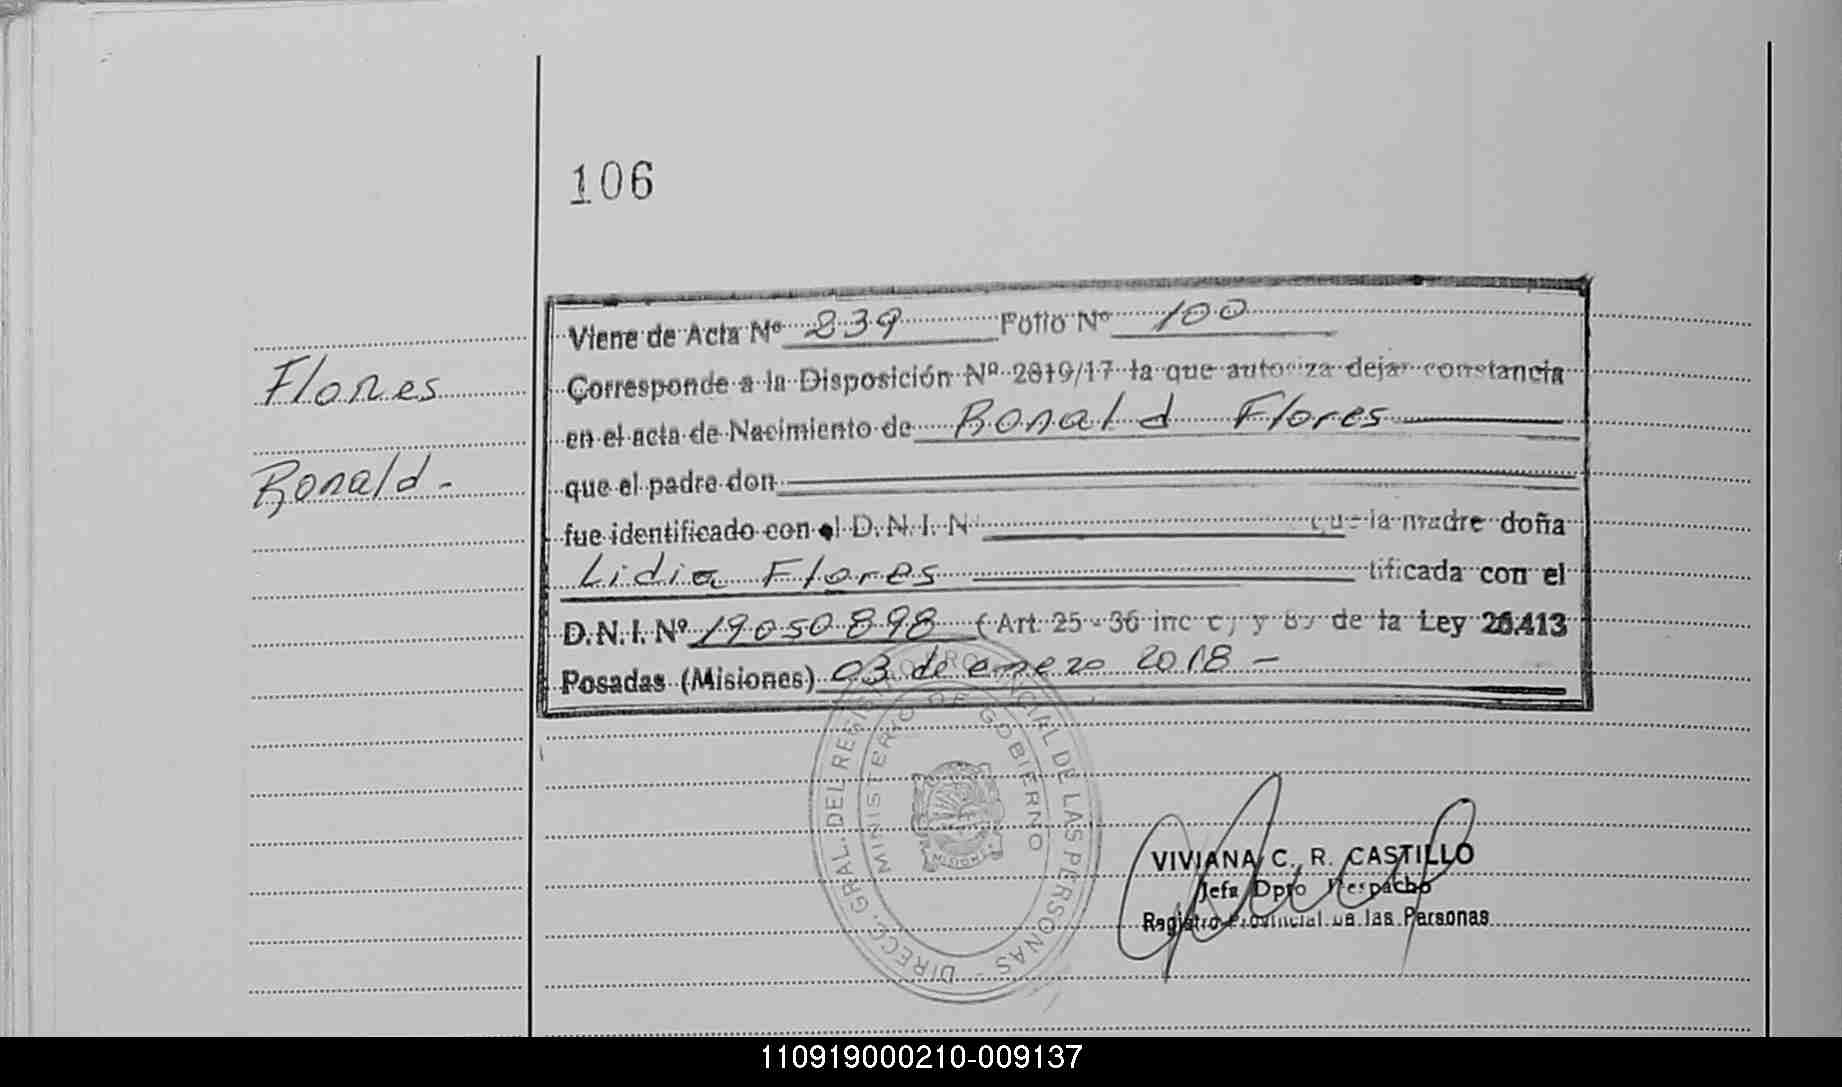 106
Flores
Ronald -
Viene de Acta Nº 839 Folio Nº 100
Corresponde a la Disposición Nº 2819/17 la que autoriza dejar constancia
en el acta de Nacimiento de Ronald Flores
que el padre don
fue identificado con el D.N.I. Nº que la madre doña
Lidia Flores tificada con el
D.N.I. Nº 19050898 (Art. 25 - 36 inc c) y 85 de la Ley 26.413
Posadas (Misiones) 03 de enero 2018 -
DIRECC. GRAL. DEL REGISTRO PROVINCIAL DE LAS PERSONAS -
MINISTERIO DE GOBIERNO
MISIONES
VIVIANA C. R. CASTILLO
Jefa Dpto Despacho
Registro Provincial de las Personas
110919000210-009137